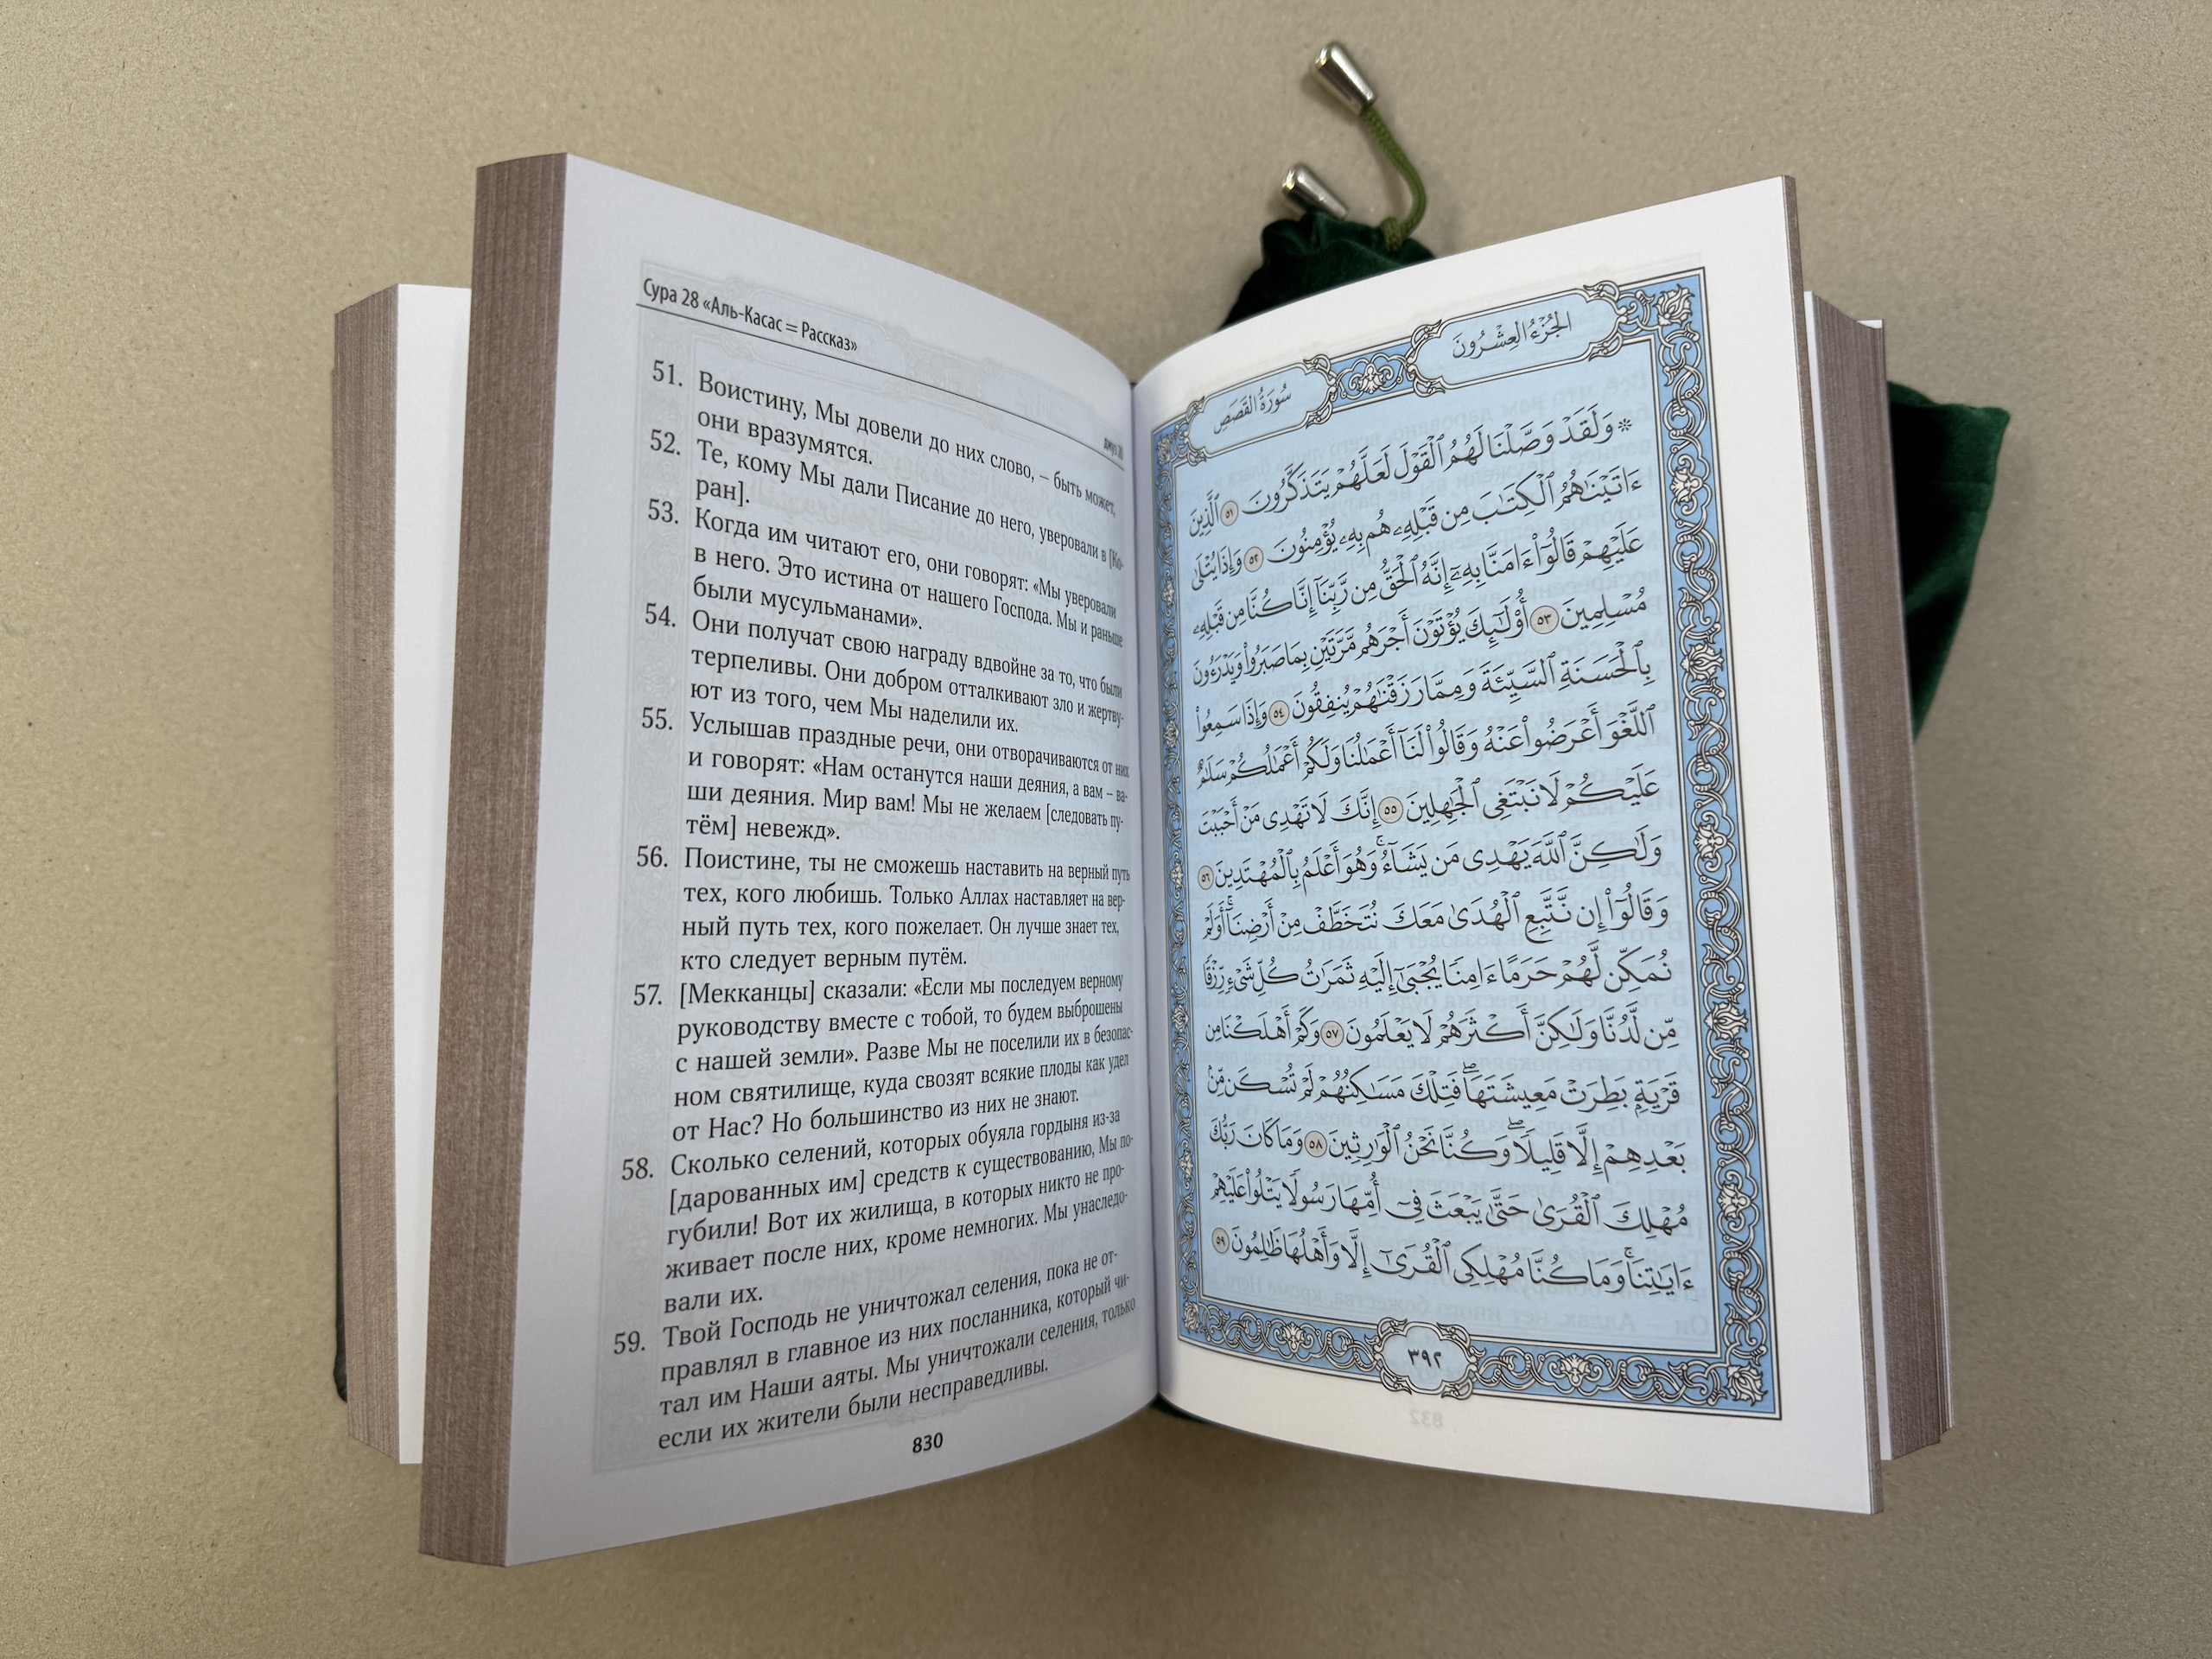 Сура 28 «Аль-Касас = Рассказ»
джуз 20
51. Воистину, Мы довели до них слово, – быть может,
они вразумятся.
52. Те, кому Мы дали Писание до него, уверовали в [Ко-
ран].
53. Когда им читают его, они говорят: «Мы уверовали
в него. Это истина от нашего Господа. Мы и раньше
были мусульманами».
54. Они получат свою награду вдвойне за то, что были
терпеливы. Они добром отталкивают зло и жертву-
ют из того, чем Мы наделили их.
55. Услышав праздные речи, они отворачиваются от них
и говорят: «Нам останутся наши деяния, а вам – ва-
ши деяния. Мир вам! Мы не желаем [следовать пу-
тём] невежд».
56. Поистине, ты не сможешь наставить на верный путь
тех, кого любишь. Только Аллах наставляет на вер-
ный путь тех, кого пожелает. Он лучше знает тех,
кто следует верным путём.
57. [Мекканцы] сказали: «Если мы последуем верному
руководству вместе с тобой, то будем выброшены
с нашей земли». Разве Мы не поселили их в безопас-
ном святилище, куда свозят всякие плоды как удел
от Нас? Но большинство из них не знают.
58. Сколько селений, которых обуяла гордыня из-за
[дарованных им] средств к существованию, Мы по-
губили! Вот их жилища, в которых никто не про-
живает после них, кроме немногих. Мы унаследо-
вали их.
59. Твой Господь не уничтожал селения, пока не от-
правлял в главное из них посланника, который чи-
тал им Наши аяты. Мы уничтожали селения, только
если их жители были несправедливы.
830
الجُزْءُ العِشْرُونَ
سُورَةُ القَصَصِ
* وَلَقَدْ وَصَّلْنَا لَهُمُ ٱلْقَوْلَ لَعَلَّهُمْ يَتَذَكَّرُونَ ٥١ ٱلَّذِينَ
ءَاتَيْنَٰهُمُ ٱلْكِتَٰبَ مِن قَبْلِهِۦ هُم بِهِۦ يُؤْمِنُونَ ٥٢ وَإِذَا يُتْلَىٰ
عَلَيْهِمْ قَالُوٓا۟ ءَامَنَّا بِهِۦٓ إِنَّهُ ٱلْحَقُّ مِن رَّبِّنَآ إِنَّا كُنَّا مِن قَبْلِهِۦ
مُسْلِمِينَ ٥٣ أُو۟لَٰٓئِكَ يُؤْتَوْنَ أَجْرَهُم مَّرَّتَيْنِ بِمَا صَبَرُوا۟ وَيَدْرَءُونَ
بِٱلْحَسَنَةِ ٱلسَّيِّئَةَ وَمِمَّا رَزَقْنَٰهُمْ يُنفِقُونَ ٥٤ وَإِذَا سَمِعُوا۟
ٱللَّغْوَ أَعْرَضُوا۟ عَنْهُ وَقَالُوا۟ لَنَآ أَعْمَٰلُنَا وَلَكُمْ أَعْمَٰلُكُمْ سَلَٰمٌ
عَلَيْكُمْ لَا نَبْتَغِى ٱلْجَٰهِلِينَ ٥٥ إِنَّكَ لَا تَهْدِى مَنْ أَحْبَبْتَ
وَلَٰكِنَّ ٱللَّهَ يَهْدِى مَن يَشَآءُ ۚ وَهُوَ أَعْلَمُ بِٱلْمُهْتَدِينَ ٥٦
وَقَالُوٓا۟ إِن نَّتَّبِعِ ٱلْهُدَىٰ مَعَكَ نُتَخَطَّفْ مِنْ أَرْضِنَآ ۚ أَوَلَمْ
نُمَكِّن لَّهُمْ حَرَمًا ءَامِنًا يُجْبَىٰٓ إِلَيْهِ ثَمَرَٰتُ كُلِّ شَىْءٍ رِّزْقًا
مِّن لَّدُنَّا وَلَٰكِنَّ أَكْثَرَهُمْ لَا يَعْلَمُونَ ٥٧ وَكَمْ أَهْلَكْنَا مِن
قَرْيَةٍۭ بَطِرَتْ مَعِيشَتَهَا ۖ فَتِلْكَ مَسَٰكِنُهُمْ لَمْ تُسْكَن مِّنۢ
بَعْدِهِمْ إِلَّا قَلِيلًا ۖ وَكُنَّا نَحْنُ ٱلْوَٰرِثِينَ ٥٨ وَمَا كَانَ رَبُّكَ
مُهْلِكَ ٱلْقُرَىٰ حَتَّىٰ يَبْعَثَ فِىٓ أُمِّهَا رَسُولًا يَتْلُوا۟ عَلَيْهِمْ
ءَايَٰتِنَا ۚ وَمَا كُنَّا مُهْلِكِى ٱلْقُرَىٰٓ إِلَّا وَأَهْلُهَا ظَٰلِمُونَ ٥٩
٣٩٢